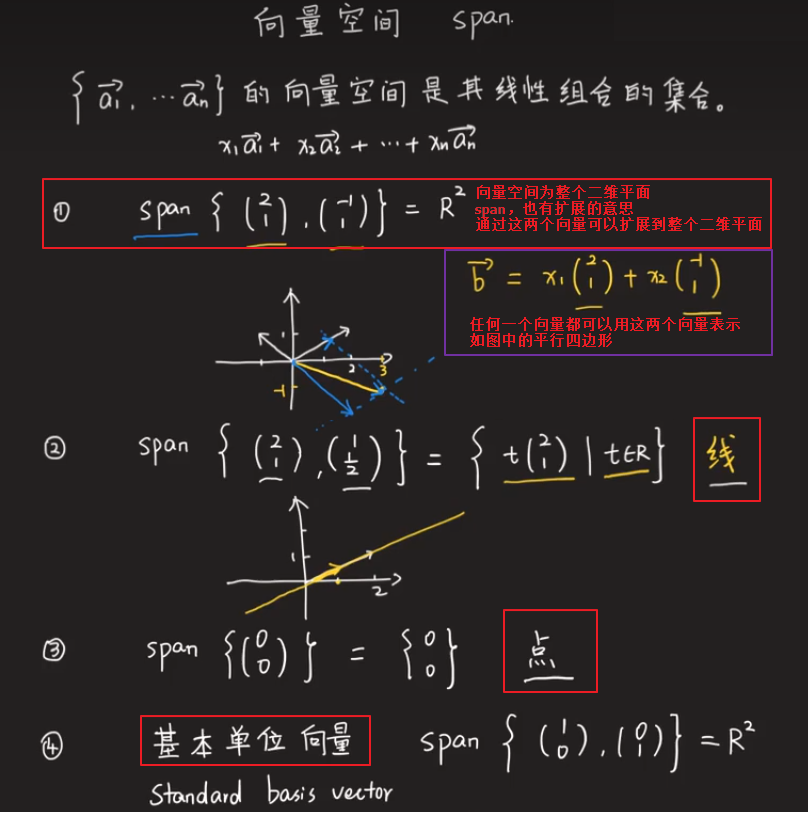 向量空间 span.
{ a₁, ⋯ aₙ } 的向量空间是其线性组合的集合。
x₁a₁ + x₂a₂ + ⋯ + xₙaₙ
① span { (2 1), (-1 1) } = R² 向量空间为整个二维平面
span，也有扩展的意思
通过这两个向量可以扩展到整个二维平面
b = x₁(2 1) + x₂(-1 1)
任何一个向量都可以用这两个向量表示
如图中的平行四边形
1
2 3
-1
② span { (2 1), (1 1/2) } = { t(2 1) | t∈R } 线
1
2
③ span { (0 0) } = { 0 0 } 点
④ 基本单位向量 span { (1 0), (0 1) } = R²
Standard basis vector